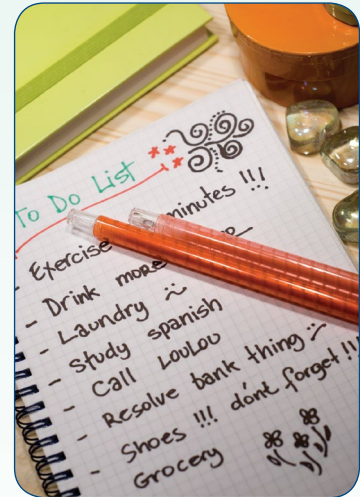 To Do List
- Exercise minutes !!!
- Drink more
- Laundry
- Study spanish
- Call LOULOU
- Resolve bank thing
- Shoes !!! dónt forget !!!
- Grocery